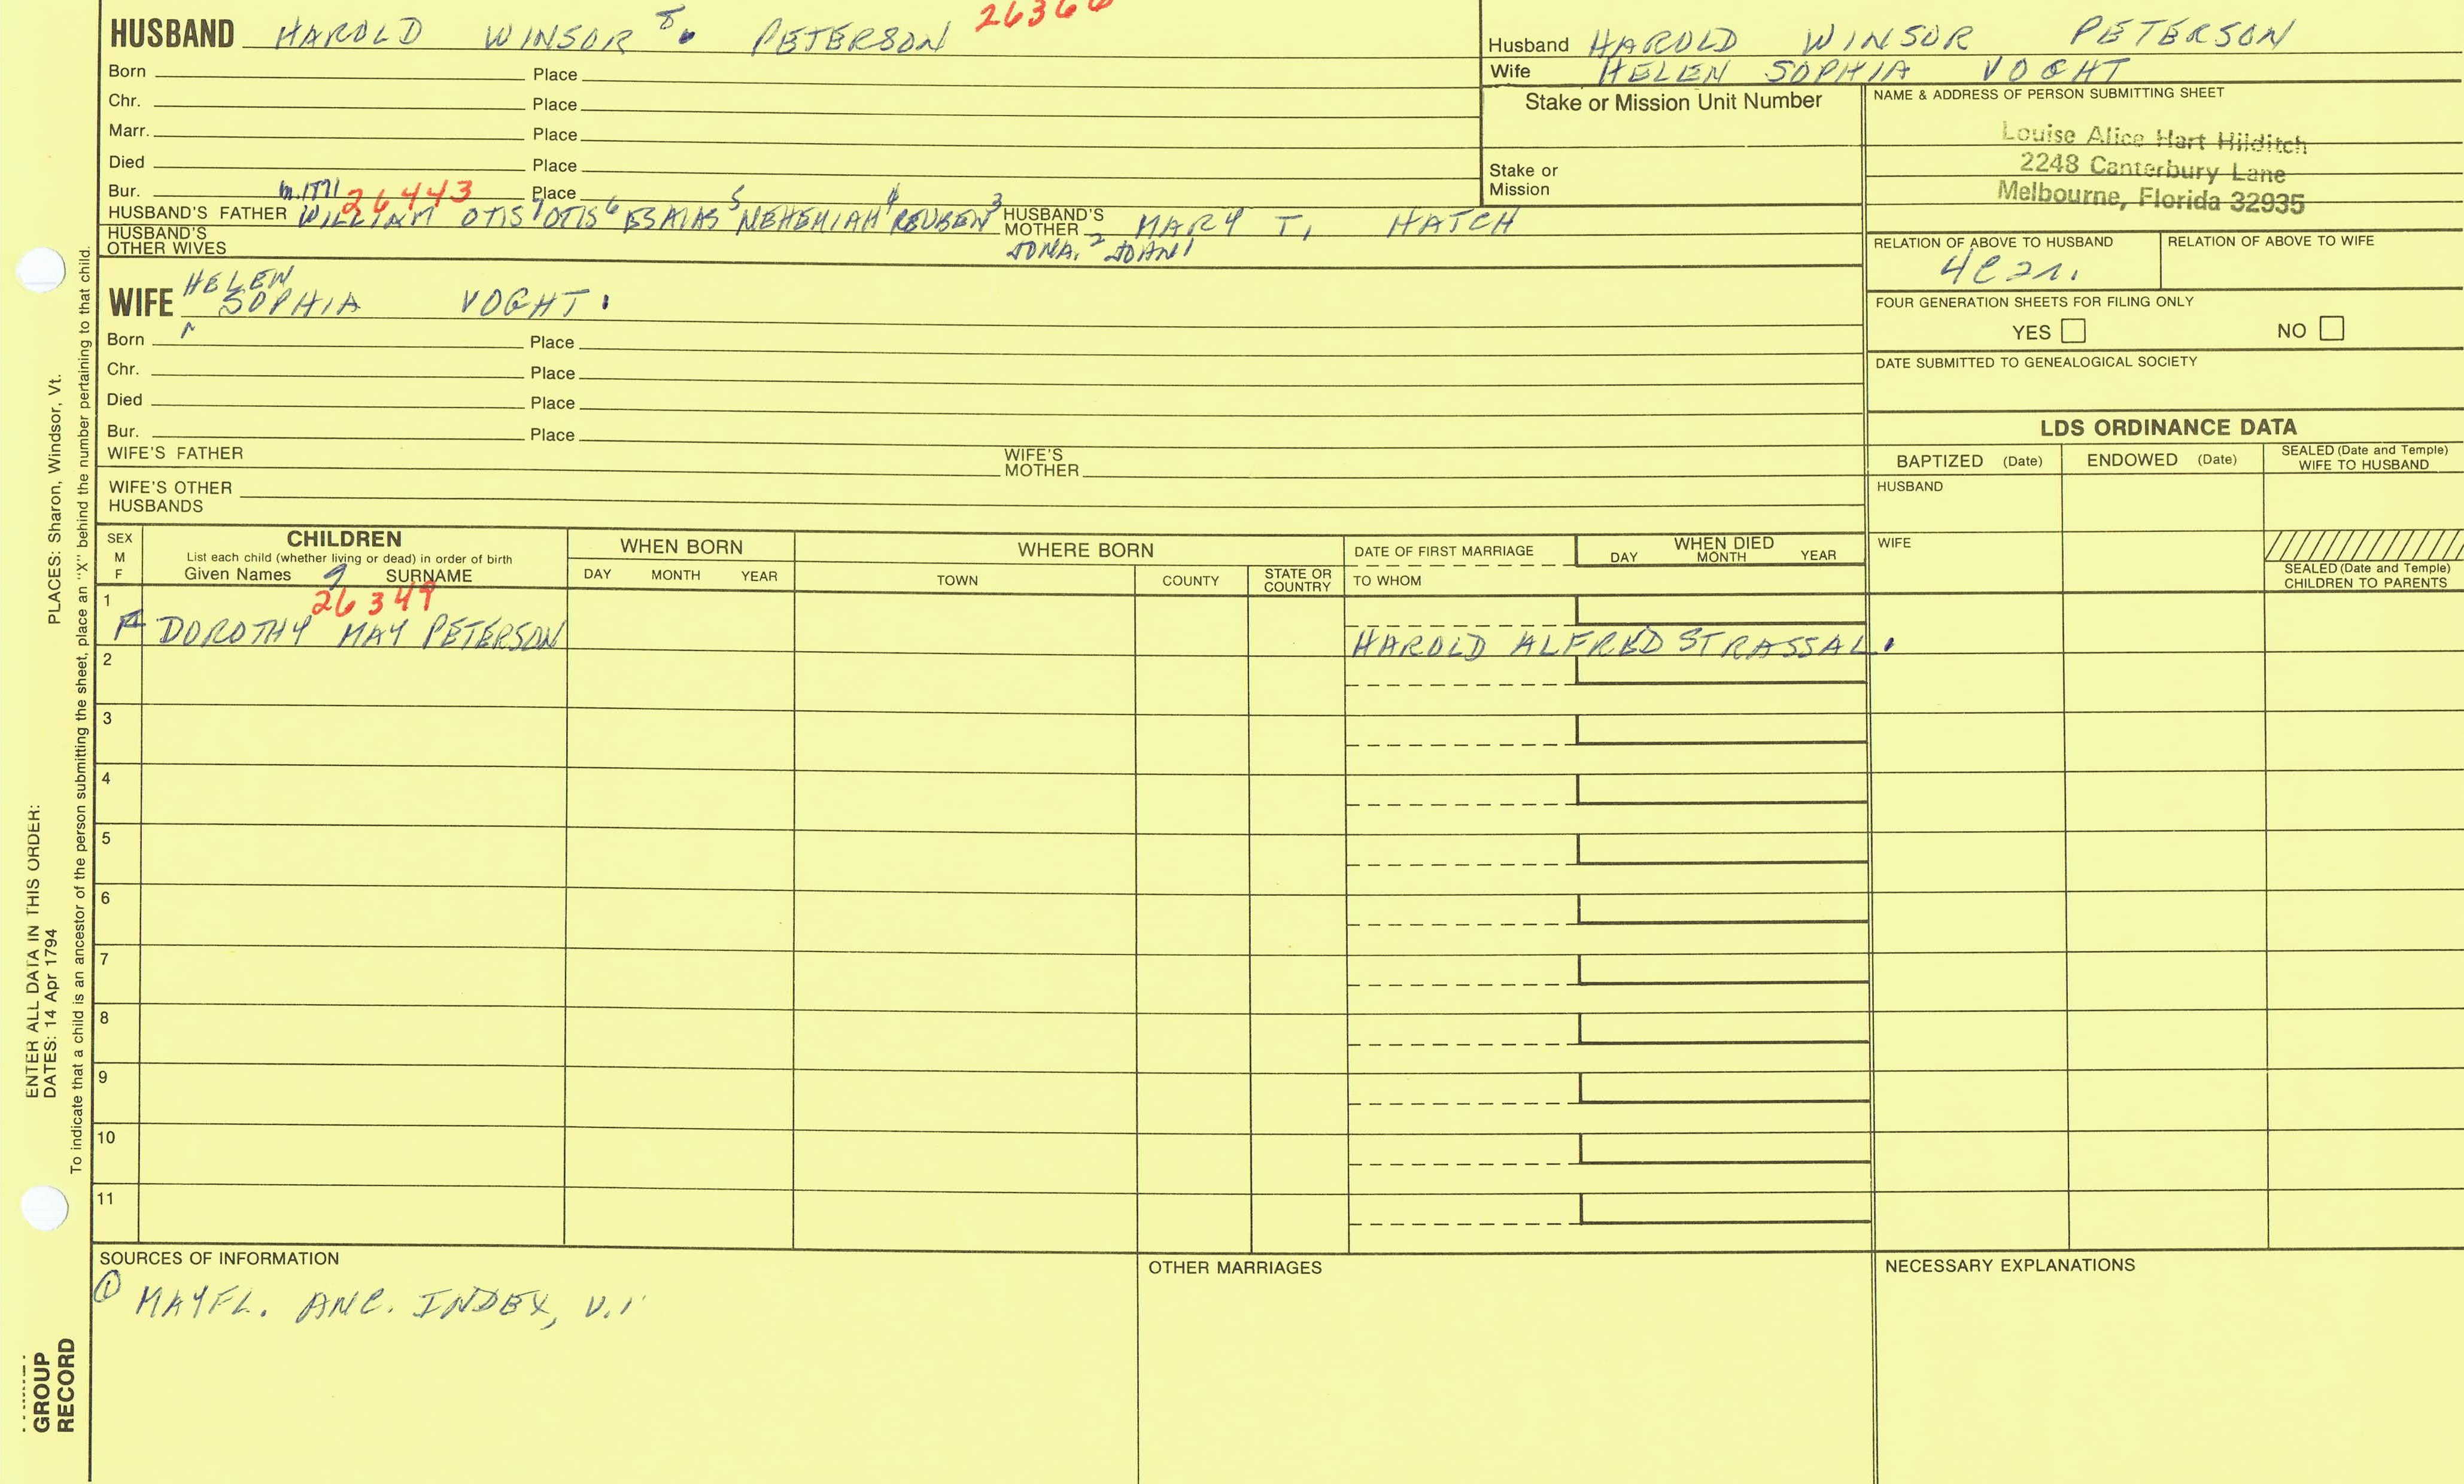 HUSBAND HAROLD WINSOR 8. PETERSON
Born Place
Chr. Place
Marr. Place
Died Place
Bur. 26443 Place
HUSBAND'S FATHER WILLIAM OTIS 7 OTIS 6 ESAIAS 5 NEHEMIAH 4 REUBEN 3 HUSBAND'S MOTHER MARY T. HATCH
HUSBAND'S OTHER WIVES JONA. 2 JOHN 1
WIFE HELEN SOPHIA VOGHT.
Born Place
Chr. Place
Died Place
Bur. Place
WIFE'S FATHER WIFE'S MOTHER
WIFE'S OTHER HUSBANDS
Husband HAROLD WINSOR PETERSON
Wife HELEN SOPHIA VOGHT
Stake or Mission Unit Number
Stake or Mission
NAME & ADDRESS OF PERSON SUBMITTING SHEET
Louise Alice Hart Hilditch
2248 Canterbury Lane
Melbourne, Florida 32935
RELATION OF ABOVE TO HUSBAND RELATION OF ABOVE TO WIFE
FOUR GENERATION SHEETS FOR FILING ONLY
YES NO
DATE SUBMITTED TO GENEALOGICAL SOCIETY
LDS ORDINANCE DATA
BAPTIZED (Date) ENDOWED (Date) SEALED (Date and Temple) WIFE TO HUSBAND
HUSBAND
WIFE
SEALED (Date and Temple) CHILDREN TO PARENTS
SEX M F
CHILDREN
List each child (whether living or dead) in order of birth
Given Names 9 SURNAME
WHEN BORN
DAY MONTH YEAR
WHERE BORN
TOWN COUNTY STATE OR COUNTRY
DATE OF FIRST MARRIAGE
TO WHOM
WHEN DIED
DAY MONTH YEAR
1 26349
F DOROTHY MAY PETERSON HAROLD ALFRED STRASSAL.
2
3
4
5
6
7
8
9
10
11
SOURCES OF INFORMATION
① MAYFL. ANC. INDEX, V.1
OTHER MARRIAGES
NECESSARY EXPLANATIONS
PLACES: Sharon, Windsor, Vt.
To indicate that a child is an ancestor of the person submitting the sheet, place an "X" behind the number pertaining to that child.
ENTER ALL DATA IN THIS ORDER:
DATES: 14 Apr 1794
GROUP
RECORD